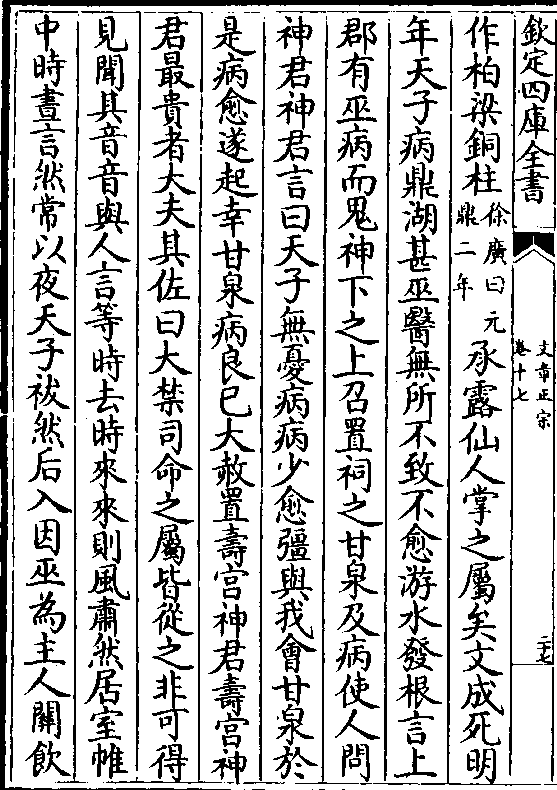 欽定四庫全書
文章正宗
卷十七
二十七
作柏梁銅柱徐廣曰元鼎二年承露仙人掌之屬矣文成死明
年天子病鼎湖甚巫醫無所不致不愈游水發根言上
郡有巫病而鬼神下之上召置祠之甘泉及病使人問
神君神君言曰天子無憂病病少愈彊與我會甘泉於
是病愈遂起幸甘泉病良已大赦置壽宮神君壽宮神
君最貴者大夫其佐曰大禁司命之屬皆從之非可得
見聞其音音與人言等時去時來來則風肅然居室帷
中時晝言然常以夜天子祓然后入因巫為主人關飲